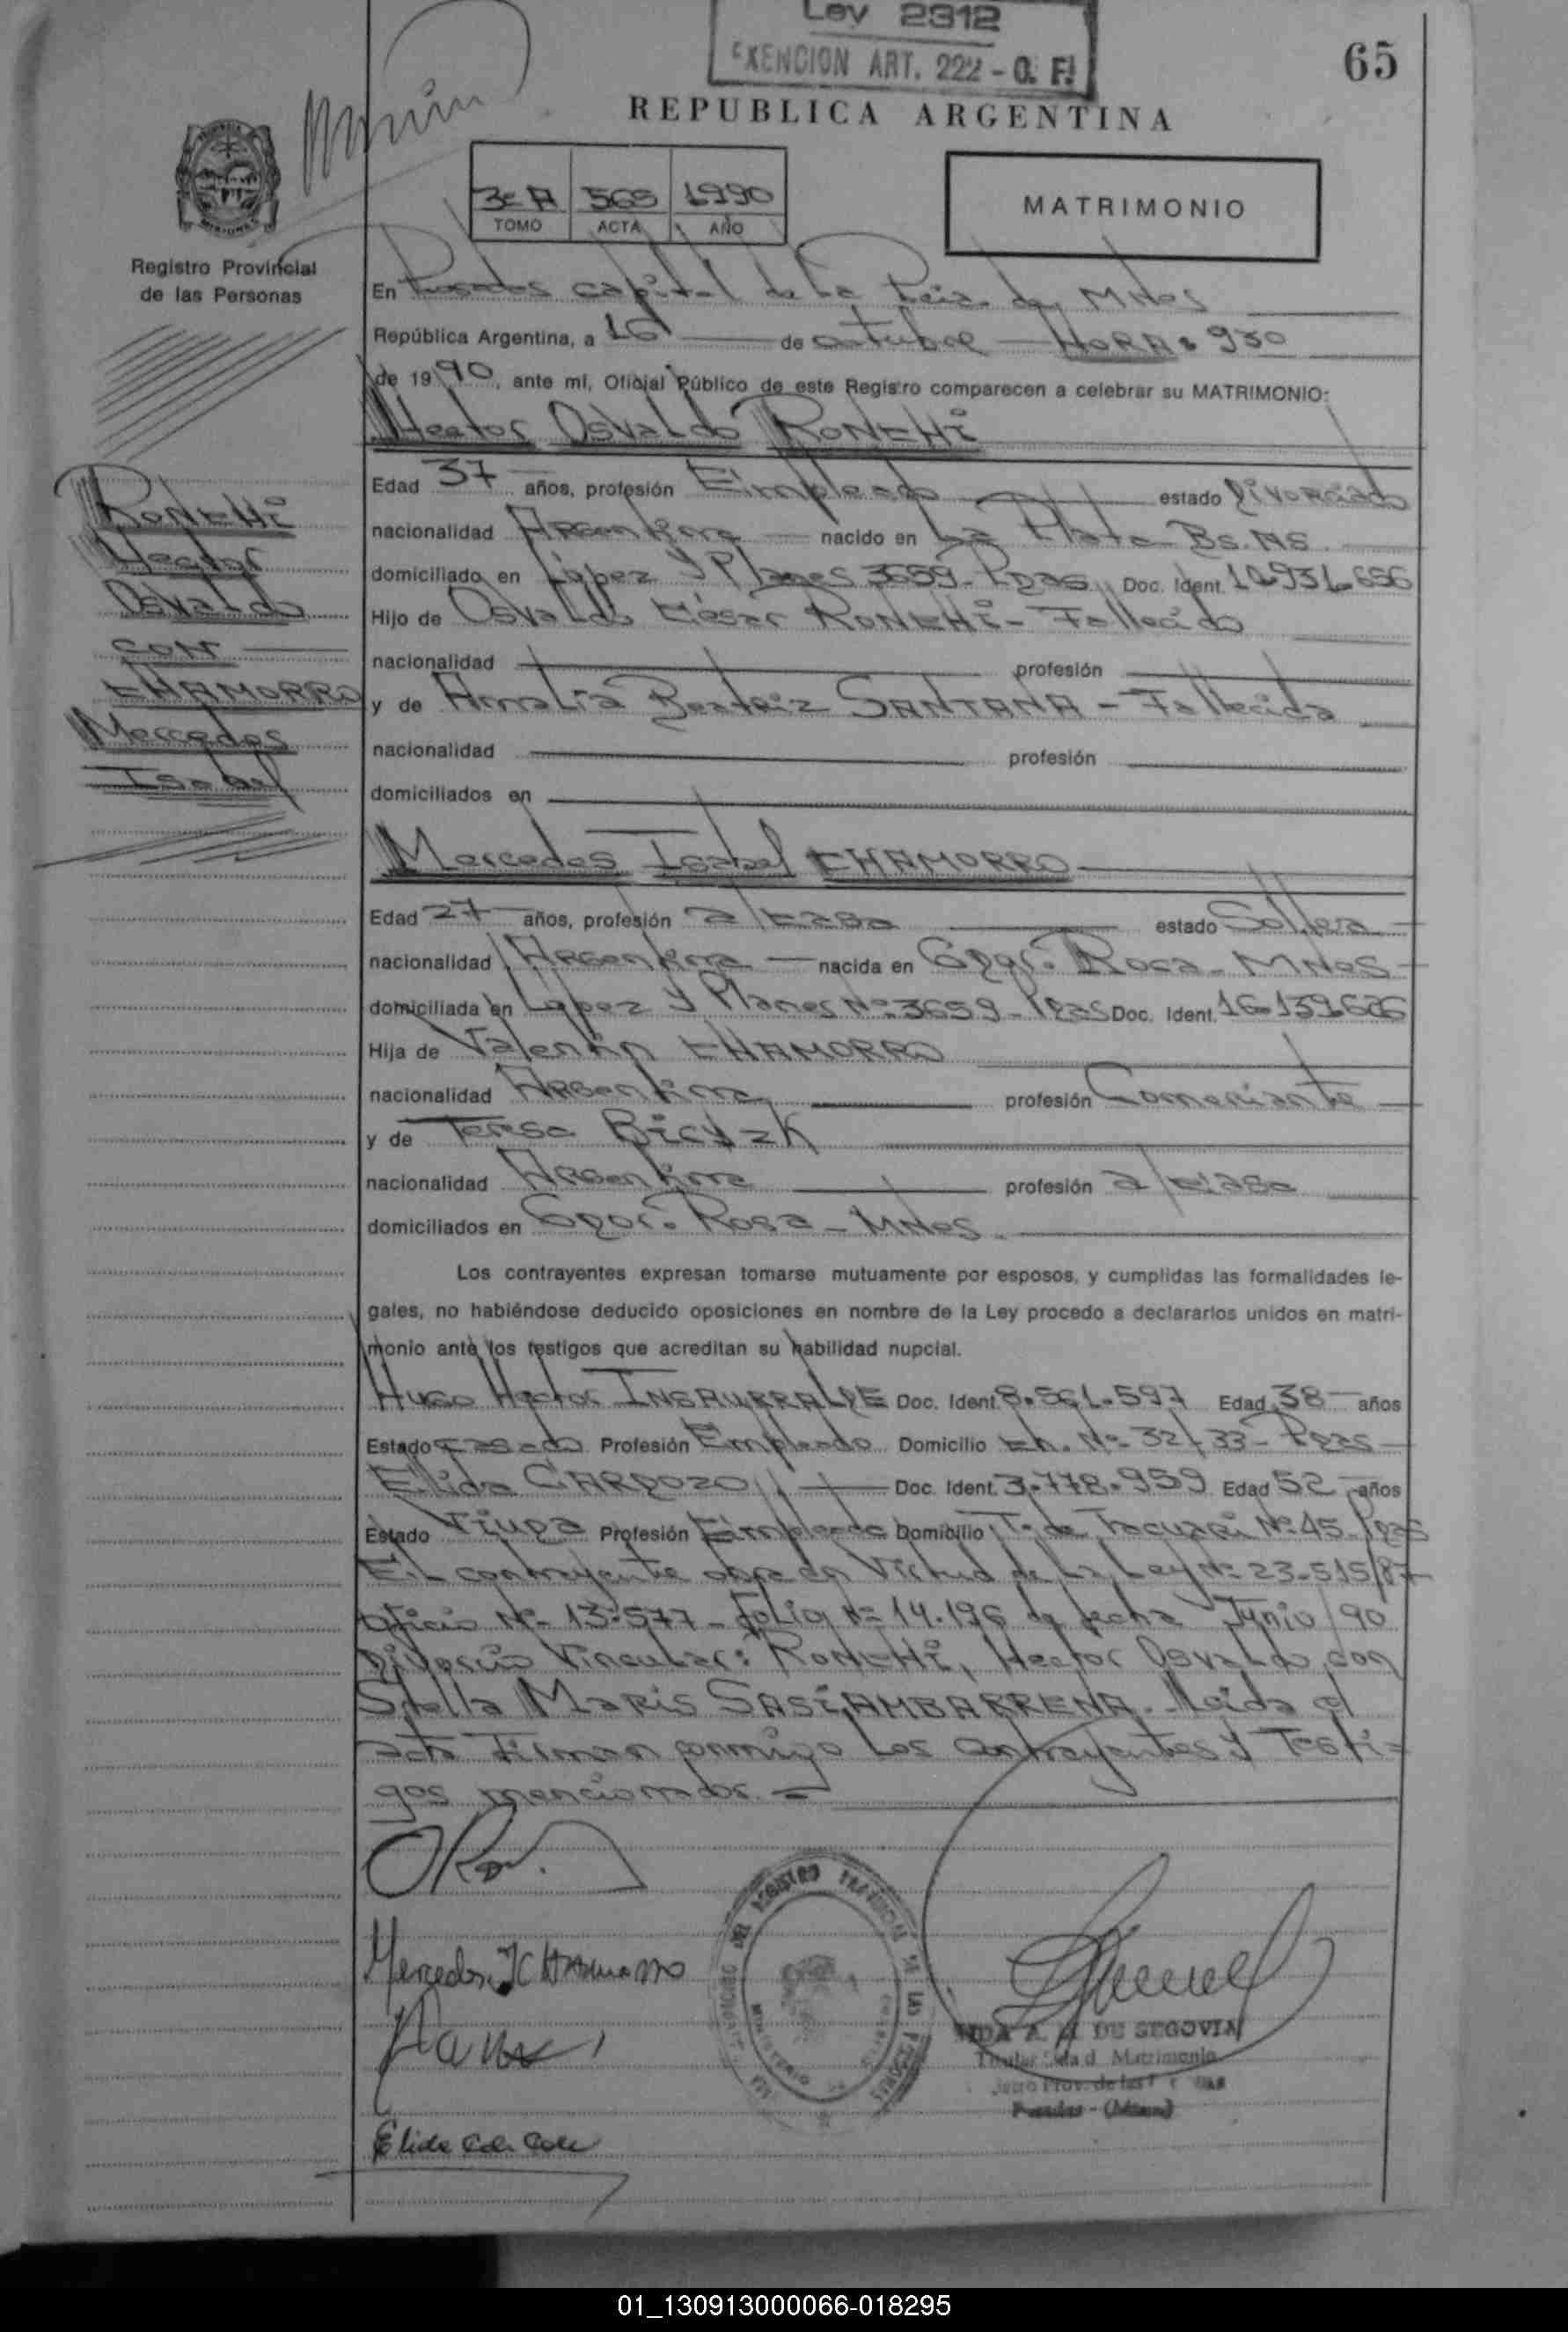 Ley 2312
EXENCION ART. 222 - O. F.
65
REPUBLICA ARGENTINA
3º A 565 1990
TOMO ACTA AÑO
MATRIMONIO
Registro Provincial
de las Personas
En Posadas capital de la Pcia. de MNes
República Argentina, a 16 de octubre HORA: 930
de 1990, ante mí, Oficial Público de este Registro comparecen a celebrar su MATRIMONIO:
Hector Osvaldo RONCHI
Edad 37 años, profesión Empleado estado Divorciado
nacionalidad Argentina nacido en La Plata - Bs. As.
domiciliado en López y Planes 3659 - Pdas. Doc. Ident. 10.931.656
Hijo de Osvaldo César RONCHI - Fallecido
nacionalidad profesión
y de Amalia Beatriz SANTANA - Fallecida
nacionalidad profesión
domiciliados en
RONCHI
Hector
Osvaldo
CON
CHAMORRO
Mercedes
Isabel
Mercedes Isabel CHAMORRO
Edad 27 años, profesión a/casa estado Soltera
nacionalidad Argentina nacida en Gdor. Roca - MNes
domiciliada en Lopez y Planes Nº 3659 - Pdas Doc. Ident. 16.139.626
Hija de Valentín CHAMORRO
nacionalidad Argentina profesión Comerciante
y de Teresa Bicyzk
nacionalidad Argentina profesión a/casa
domiciliados en Gdor. Roca - MNes
Los contrayentes expresan tomarse mutuamente por esposos, y cumplidas las formalidades le-
gales, no habiéndose deducido oposiciones en nombre de la Ley procedo a declararlos unidos en matri-
monio ante los testigos que acreditan su habilidad nupcial.
Hugo Hector INSAURRALDE Doc. Ident. 8.561.597 Edad 38 años
Estado casado Profesión Empleado Domicilio Ch. Nº 32/33 - Pdas
Elida CARDOZO Doc. Ident. 3.778.959 Edad 52 años
Estado Viuda Profesión Empleada Domicilio T. de Tacuari Nº 45 Pdas
El contrayente obra en Virtud de la Ley Nº 23.515/87
Oficio Nº 13.577 - Folio Nº 14.196 de fecha Junio/90
Divorcio Vincular: RONCHI, Hector Osvaldo con
Stella Maris SASIAMBARRENA. Leida el
acta Firman conmigo Los contrayentes y Testi-
gos mencionados. =
Mercedes I CHAMORRO
DE SEGOVIA
Matrimonio
Posadas - (Mnes)
01_130913000066-018295